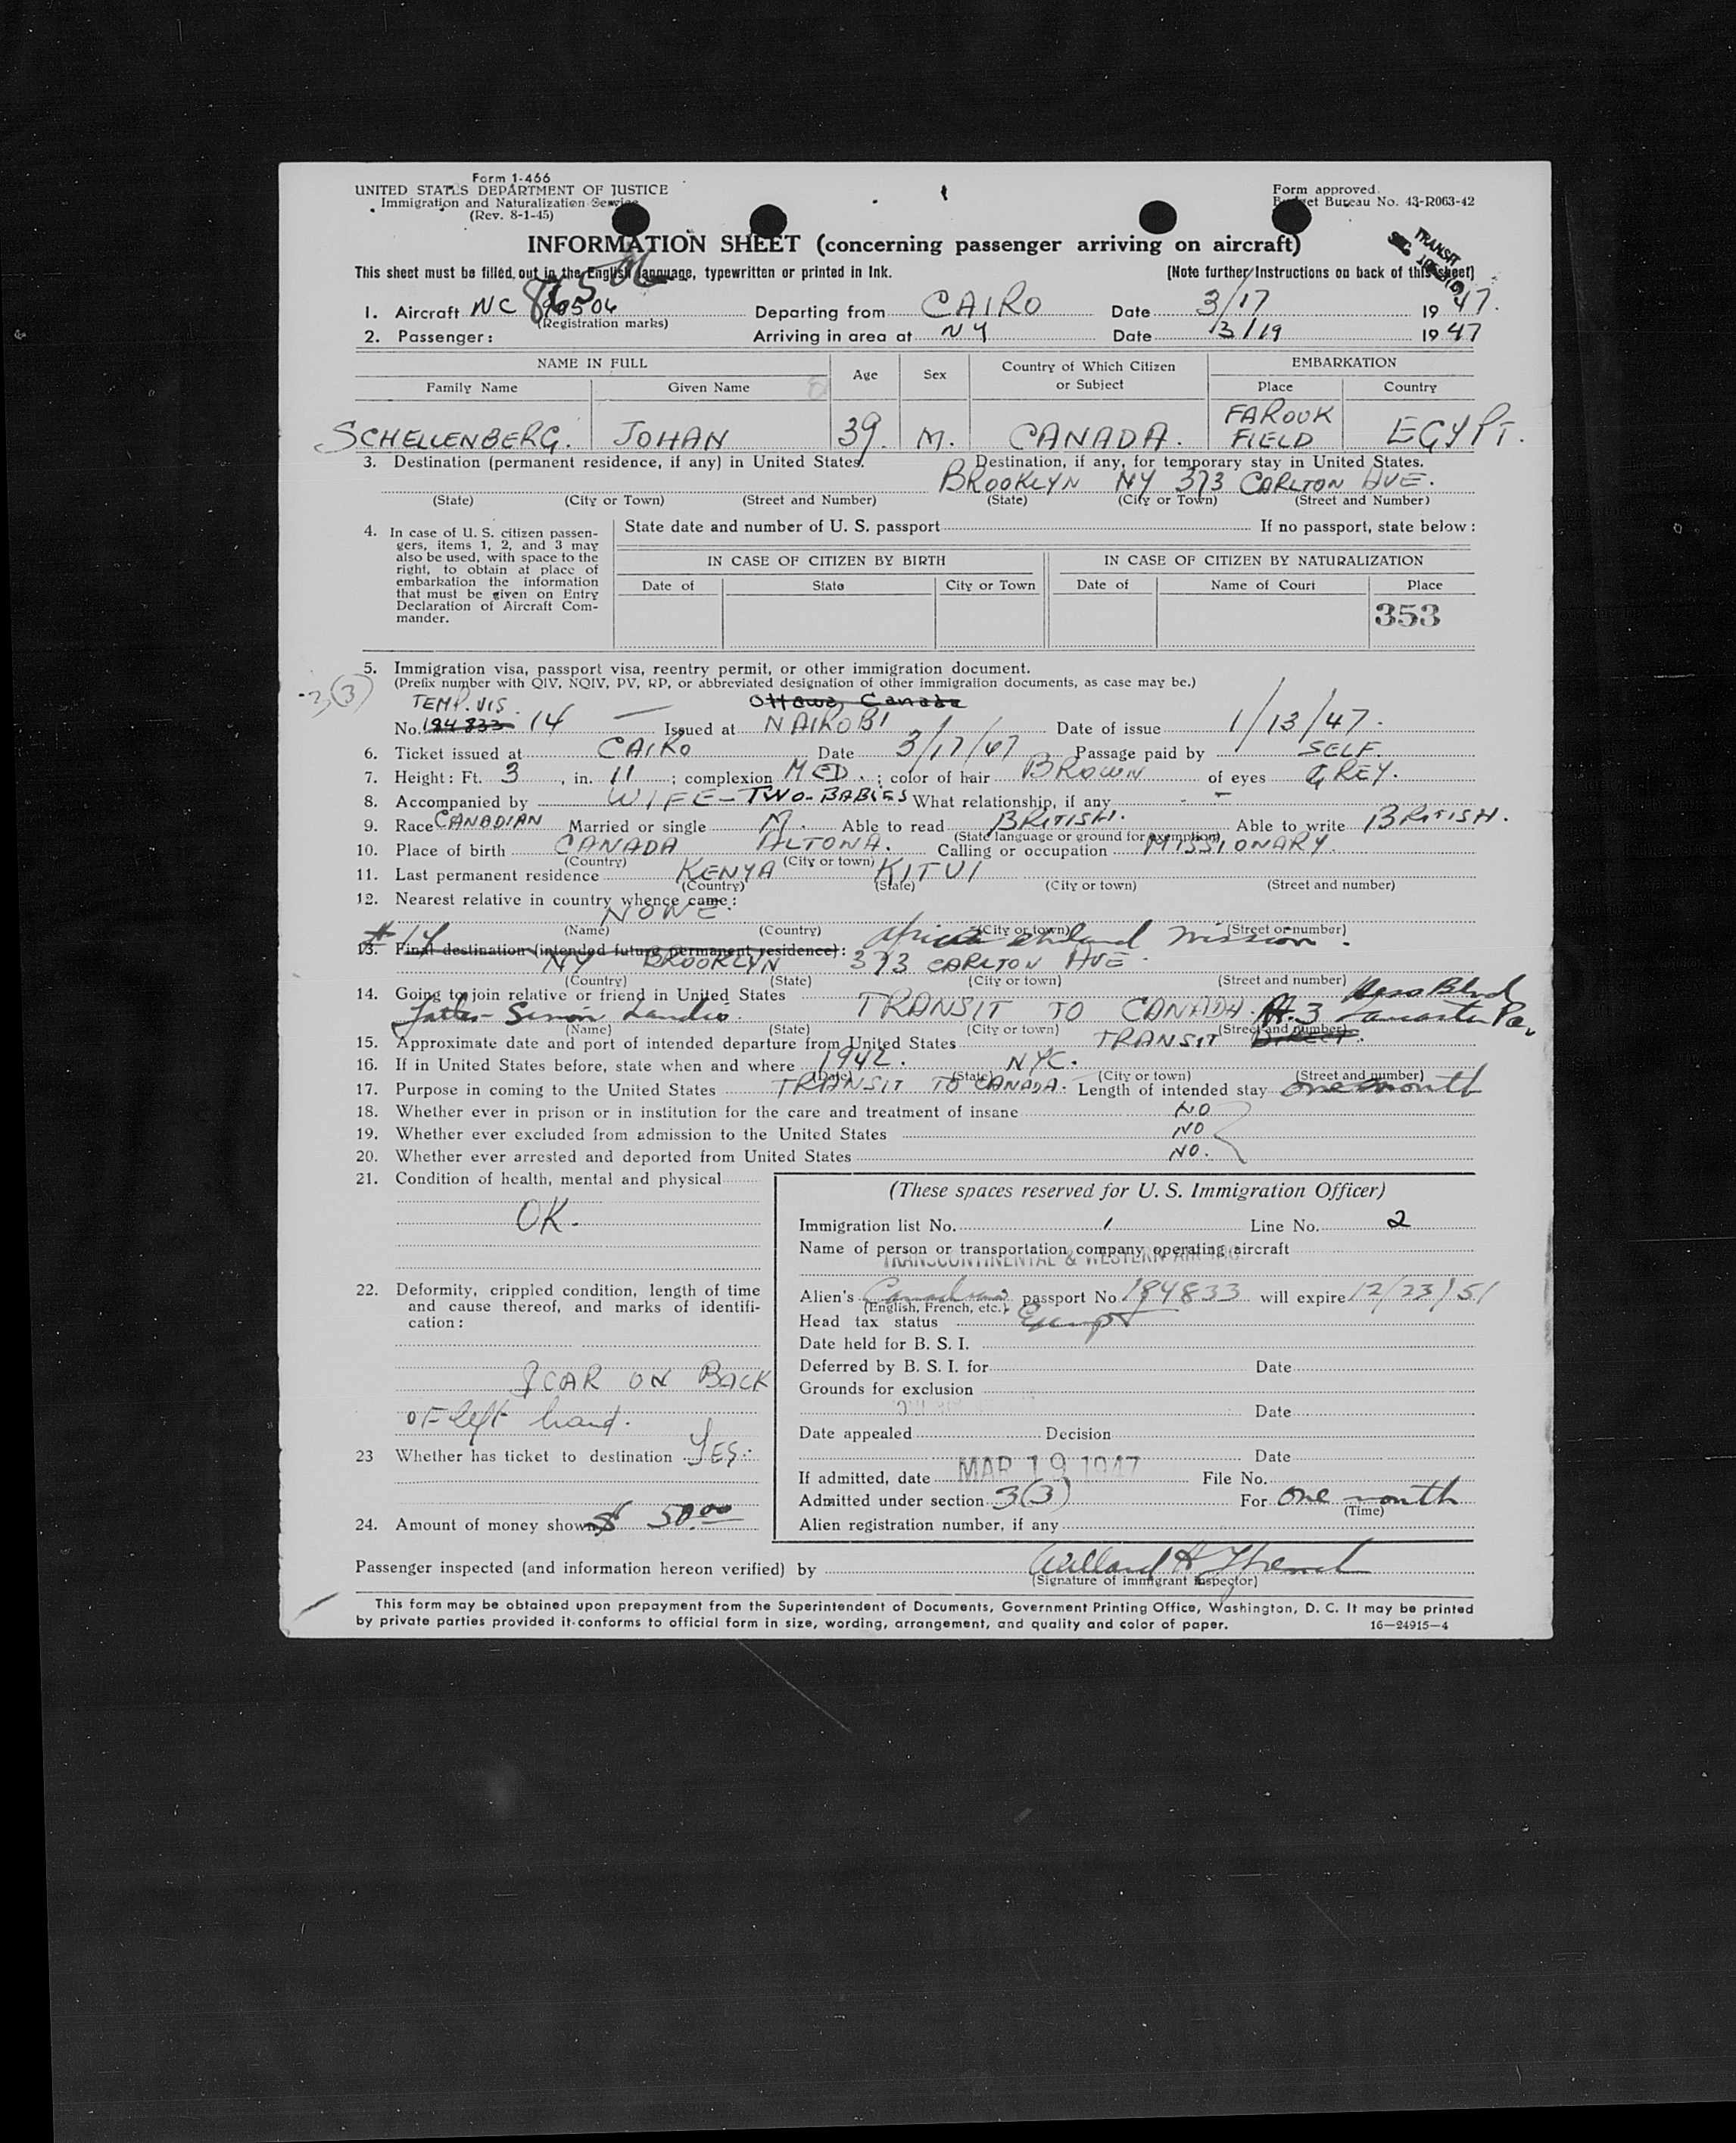 Form 1-466
UNITED STATES DEPARTMENT OF JUSTICE
Immigration and Naturalization Service
(Rev. 8-1-45)
Form approved.
Budget Bureau No. 43-R063-42
INFORMATION SHEET (concerning passenger arriving on aircraft)
TRANSIT
This sheet must be filled out in the English language, typewritten or printed in Ink. (Note further Instructions on back of this sheet)
1. Aircraft NC 90506 Departing from CAIRO Date 3/17 1947.
(Registration marks)
2. Passenger: Arriving in area at NY Date 3/19 1947
NAME IN FULL Age Sex Country of Which Citizen or Subject EMBARKATION
Family Name Given Name Place Country
SCHELLENBERG. JOHAN 39. M. CANADA. FAROUK FIELD EGYPT.
3. Destination (permanent residence, if any) in United States. Destination, if any, for temporary stay in United States.
BROOKLYN NY 373 CARLTON AVE.
(State) (City or Town) (Street and Number) (State) (City or Town) (Street and Number)
4. In case of U. S. citizen passengers, items 1, 2, and 3 may also be used, with space to the right, to obtain at place of embarkation the information that must be given on Entry Declaration of Aircraft Commander.
State date and number of U. S. passport If no passport, state below:
IN CASE OF CITIZEN BY BIRTH IN CASE OF CITIZEN BY NATURALIZATION
Date of State City or Town Date of Name of Court Place
353
5. Immigration visa, passport visa, reentry permit, or other immigration document.
(Prefix number with QIV, NQIV, PV, RP, or abbreviated designation of other immigration documents, as case may be.)
3(3)
TEMP. VIS. Ottawa, Canada
No. 194833 14 Issued at NAIROBI Date of issue 1/13/47.
6. Ticket issued at CAIRO Date 3/17/47 Passage paid by SELF
7. Height: Ft. 3, in. 11; complexion MED.; color of hair BROWN of eyes GREY.
8. Accompanied by WIFE-TWO-BABIES What relationship, if any -
9. Race CANADIAN Married or single M. Able to read BRITISH. Able to write BRITISH.
(State language or ground for exemption)
10. Place of birth CANADA ALTONA. Calling or occupation MISSIONARY.
(Country) (City or town)
11. Last permanent residence KENYA KITUI
(Country) (State) (City or town) (Street and number)
12. Nearest relative in country whence came:
NONE.
(Name) (Country) (City or town) (Street or number)
#14
13. Final destination (intended future permanent residence): Africa Inland Mission.
NY BROOKLYN 373 CARLTON AVE.
(Country) (State) (City or town) (Street and number)
14. Going to join relative or friend in United States TRANSIT TO CANADA. Rt. 3 Lancaster Pa.
Simon Landis.
(Name) (State) (City or town) (Street and number)
15. Approximate date and port of intended departure from United States TRANSIT DIRECT.
16. If in United States before, state when and where 1942. NYC.
(Date) (State) (City or town) (Street and number)
17. Purpose in coming to the United States TRANSIT TO CANADA. Length of intended stay one month
18. Whether ever in prison or in institution for the care and treatment of insane NO
19. Whether ever excluded from admission to the United States NO
20. Whether ever arrested and deported from United States NO.
21. Condition of health, mental and physical
OK.
22. Deformity, crippled condition, length of time and cause thereof, and marks of identification:
SCAR ON BACK
OF left hand.
23 Whether has ticket to destination YES.
24. Amount of money shown $ 50.00
(These spaces reserved for U. S. Immigration Officer)
Immigration list No. 1 Line No. 2
Name of person or transportation company operating aircraft
TRANSCONTINENTAL & WESTERN AIR INC.
Alien's Canadian passport No 194833 will expire 12/23/51
(English, French, etc.)
Head tax status Exempt
Date held for B. S. I.
Deferred by B. S. I. for Date
Grounds for exclusion
Date
Date appealed Decision
Date
If admitted, date MAR 19 1947 File No.
Admitted under section 3(3) For one month
(Time)
Alien registration number, if any
Passenger inspected (and information hereon verified) by
(Signature of immigrant inspector)
This form may be obtained upon prepayment from the Superintendent of Documents, Government Printing Office, Washington, D. C. It may be printed
by private parties provided it conforms to official form in size, wording, arrangement, and quality and color of paper. 16—24915-4